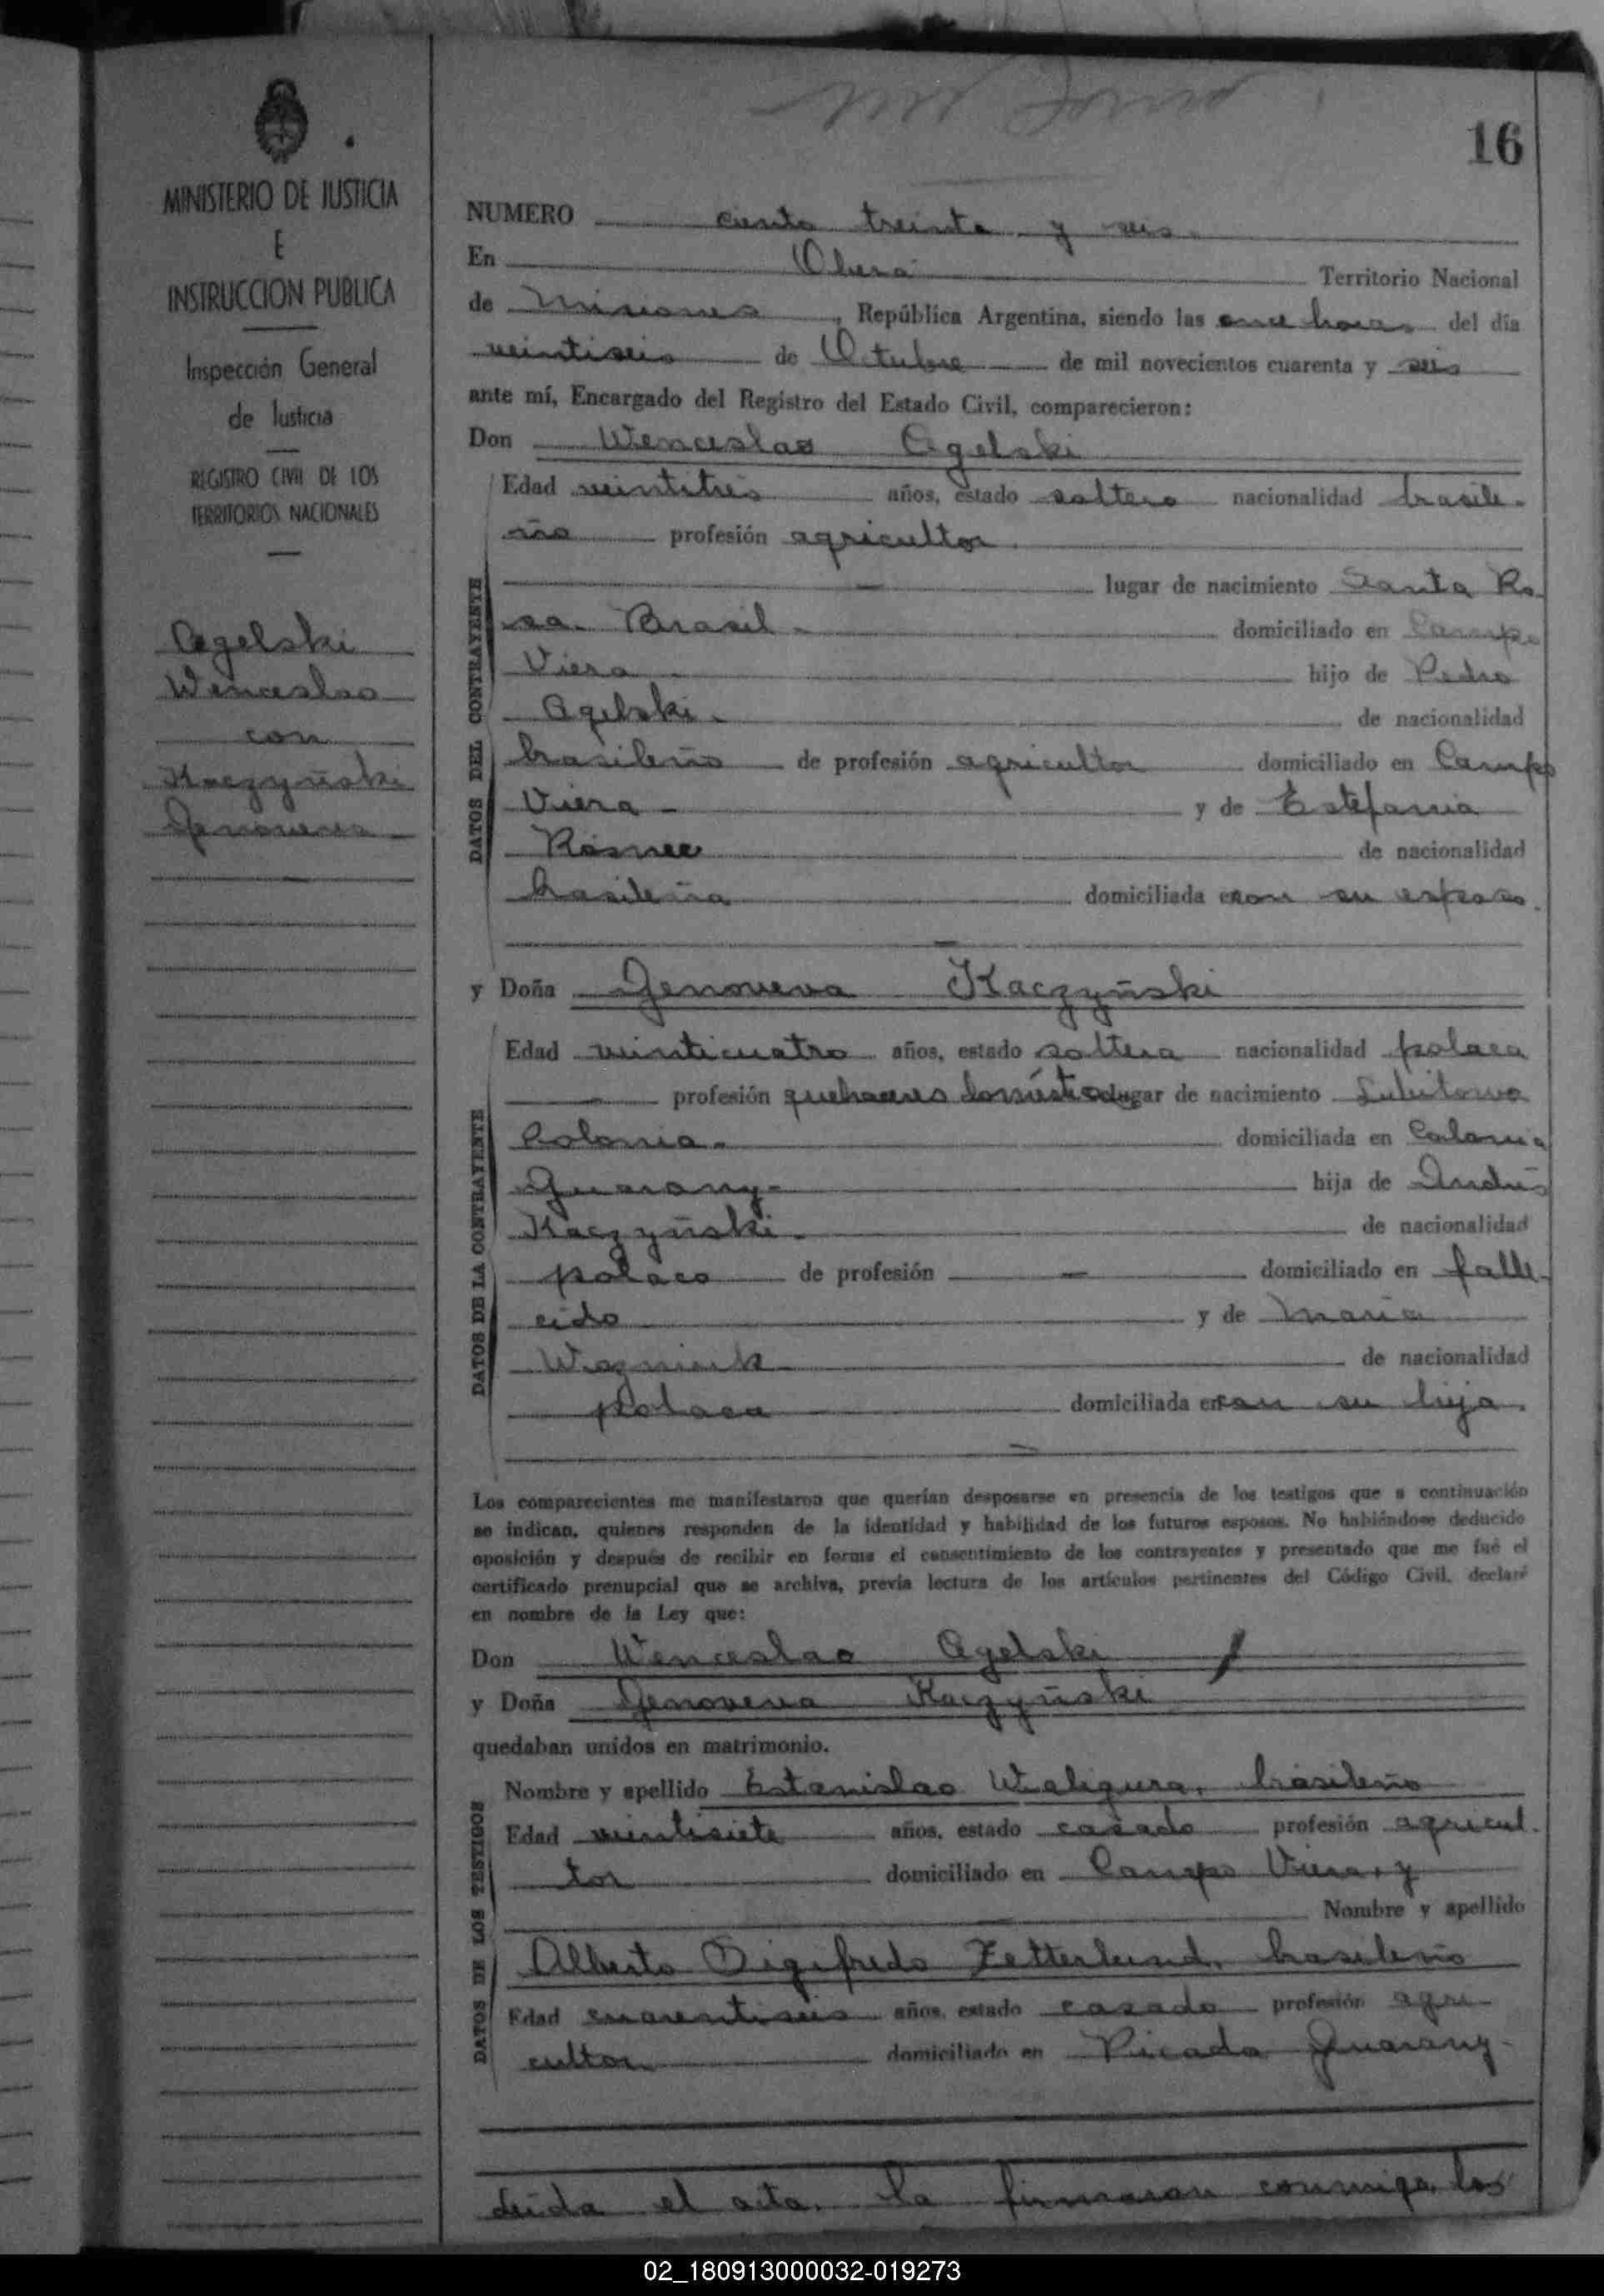 16
MINISTERIO DE JUSTICIA
E
INSTRUCCION PUBLICA
Inspección General
de Justicia
REGISTRO CIVIL DE LOS
TERRITORIOS NACIONALES
Agelski
Wenceslao
con
Kaczyñski
Genoveva
NUMERO ciento treinta y seis.
En Oberá Territorio Nacional
de Misiones, República Argentina, siendo las once horas del día
veintiseis de Octubre de mil novecientos cuarenta y seis
ante mí, Encargado del Registro del Estado Civil, comparecieron:
Don Wenceslao Agelski
DATOS DEL CONTRAYENTE
Edad veintitres años, estado soltero nacionalidad brasile-
ño profesión agricultor.
lugar de nacimiento Santa Ro-
sa. Brasil - domiciliado en Campo
Viera hijo de Pedro
Agelski. de nacionalidad
brasileño de profesión agricultor domiciliado en Campo
Viera - y de Estefania
de nacionalidad
brasileña domiciliada en con su esposo.
y Doña Genoveva Kaczyñski
DATOS DE LA CONTRAYENTE
Edad veinticuatro años, estado soltera nacionalidad polaca
profesión quehaceres domésticos lugar de nacimiento
Polonia. domiciliada en Colonia
Guarany- hija de Andrés
Kaczyñski. de nacionalidad
polaco de profesión - domiciliado en falle-
cido y de María
Wozniuk de nacionalidad
polaca domiciliada en con su hija.
Los comparecientes me manifestaron que querían desposarse en presencia de los testigos que a continuación
se indican, quienes responden de la identidad y habilidad de los futuros esposos. No habiéndose deducido
oposición y después de recibir en forma el consentimiento de los contrayentes y presentado que me fué el
certificado prenupcial que se archiva, previa lectura de los artículos pertinentes del Código Civil, declaré
en nombre de la Ley que:
Don Wenceslao Agelski
y Doña Genoveva Kaczyñski
quedaban unidos en matrimonio.
DATOS DE LOS TESTIGOS
Nombre y apellido Estanislao Weligura, brasileño
Edad veintisiete años, estado casado profesión agricul-
tor domiciliado en Campo Viera, y
Nombre y apellido
Alberto Sigifredo Zetterlund, brasileño
Edad cuarentiseis años, estado casado profesión agri-
cultor domiciliado en Picada Guarany-
Leída el acta, la firmaron conmigo los
02_180913000032-019273